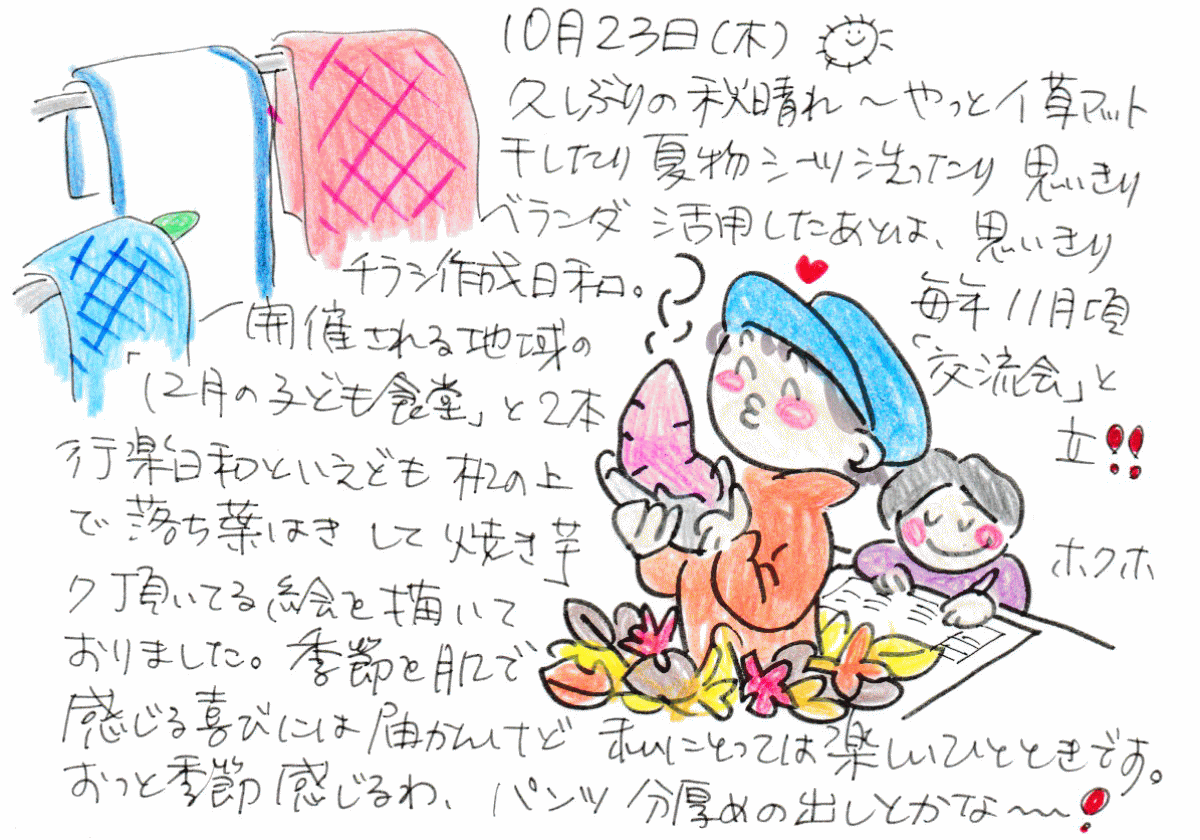 10月23日(木)
久しぶりの秋晴れ～やっとイ草マット
干したり夏物シーツ洗ったり 思いきり
ベランダ 活用したあとは、思いきり
チラシ作成日和。 毎年11月頃
開催される地域の 「交流会」と
「12月の子ども食堂」と2本 立!!
行楽日和といえども 机の上
で落ち葉はきして焼き芋 ホクホ
ク頂いてる絵を描いて
おりました。季節を肌で
感じる喜びには届かんけど 私にとっては楽しいひとときです。
おっと季節感じるわ、パンツ分厚めの出しとかな～～!